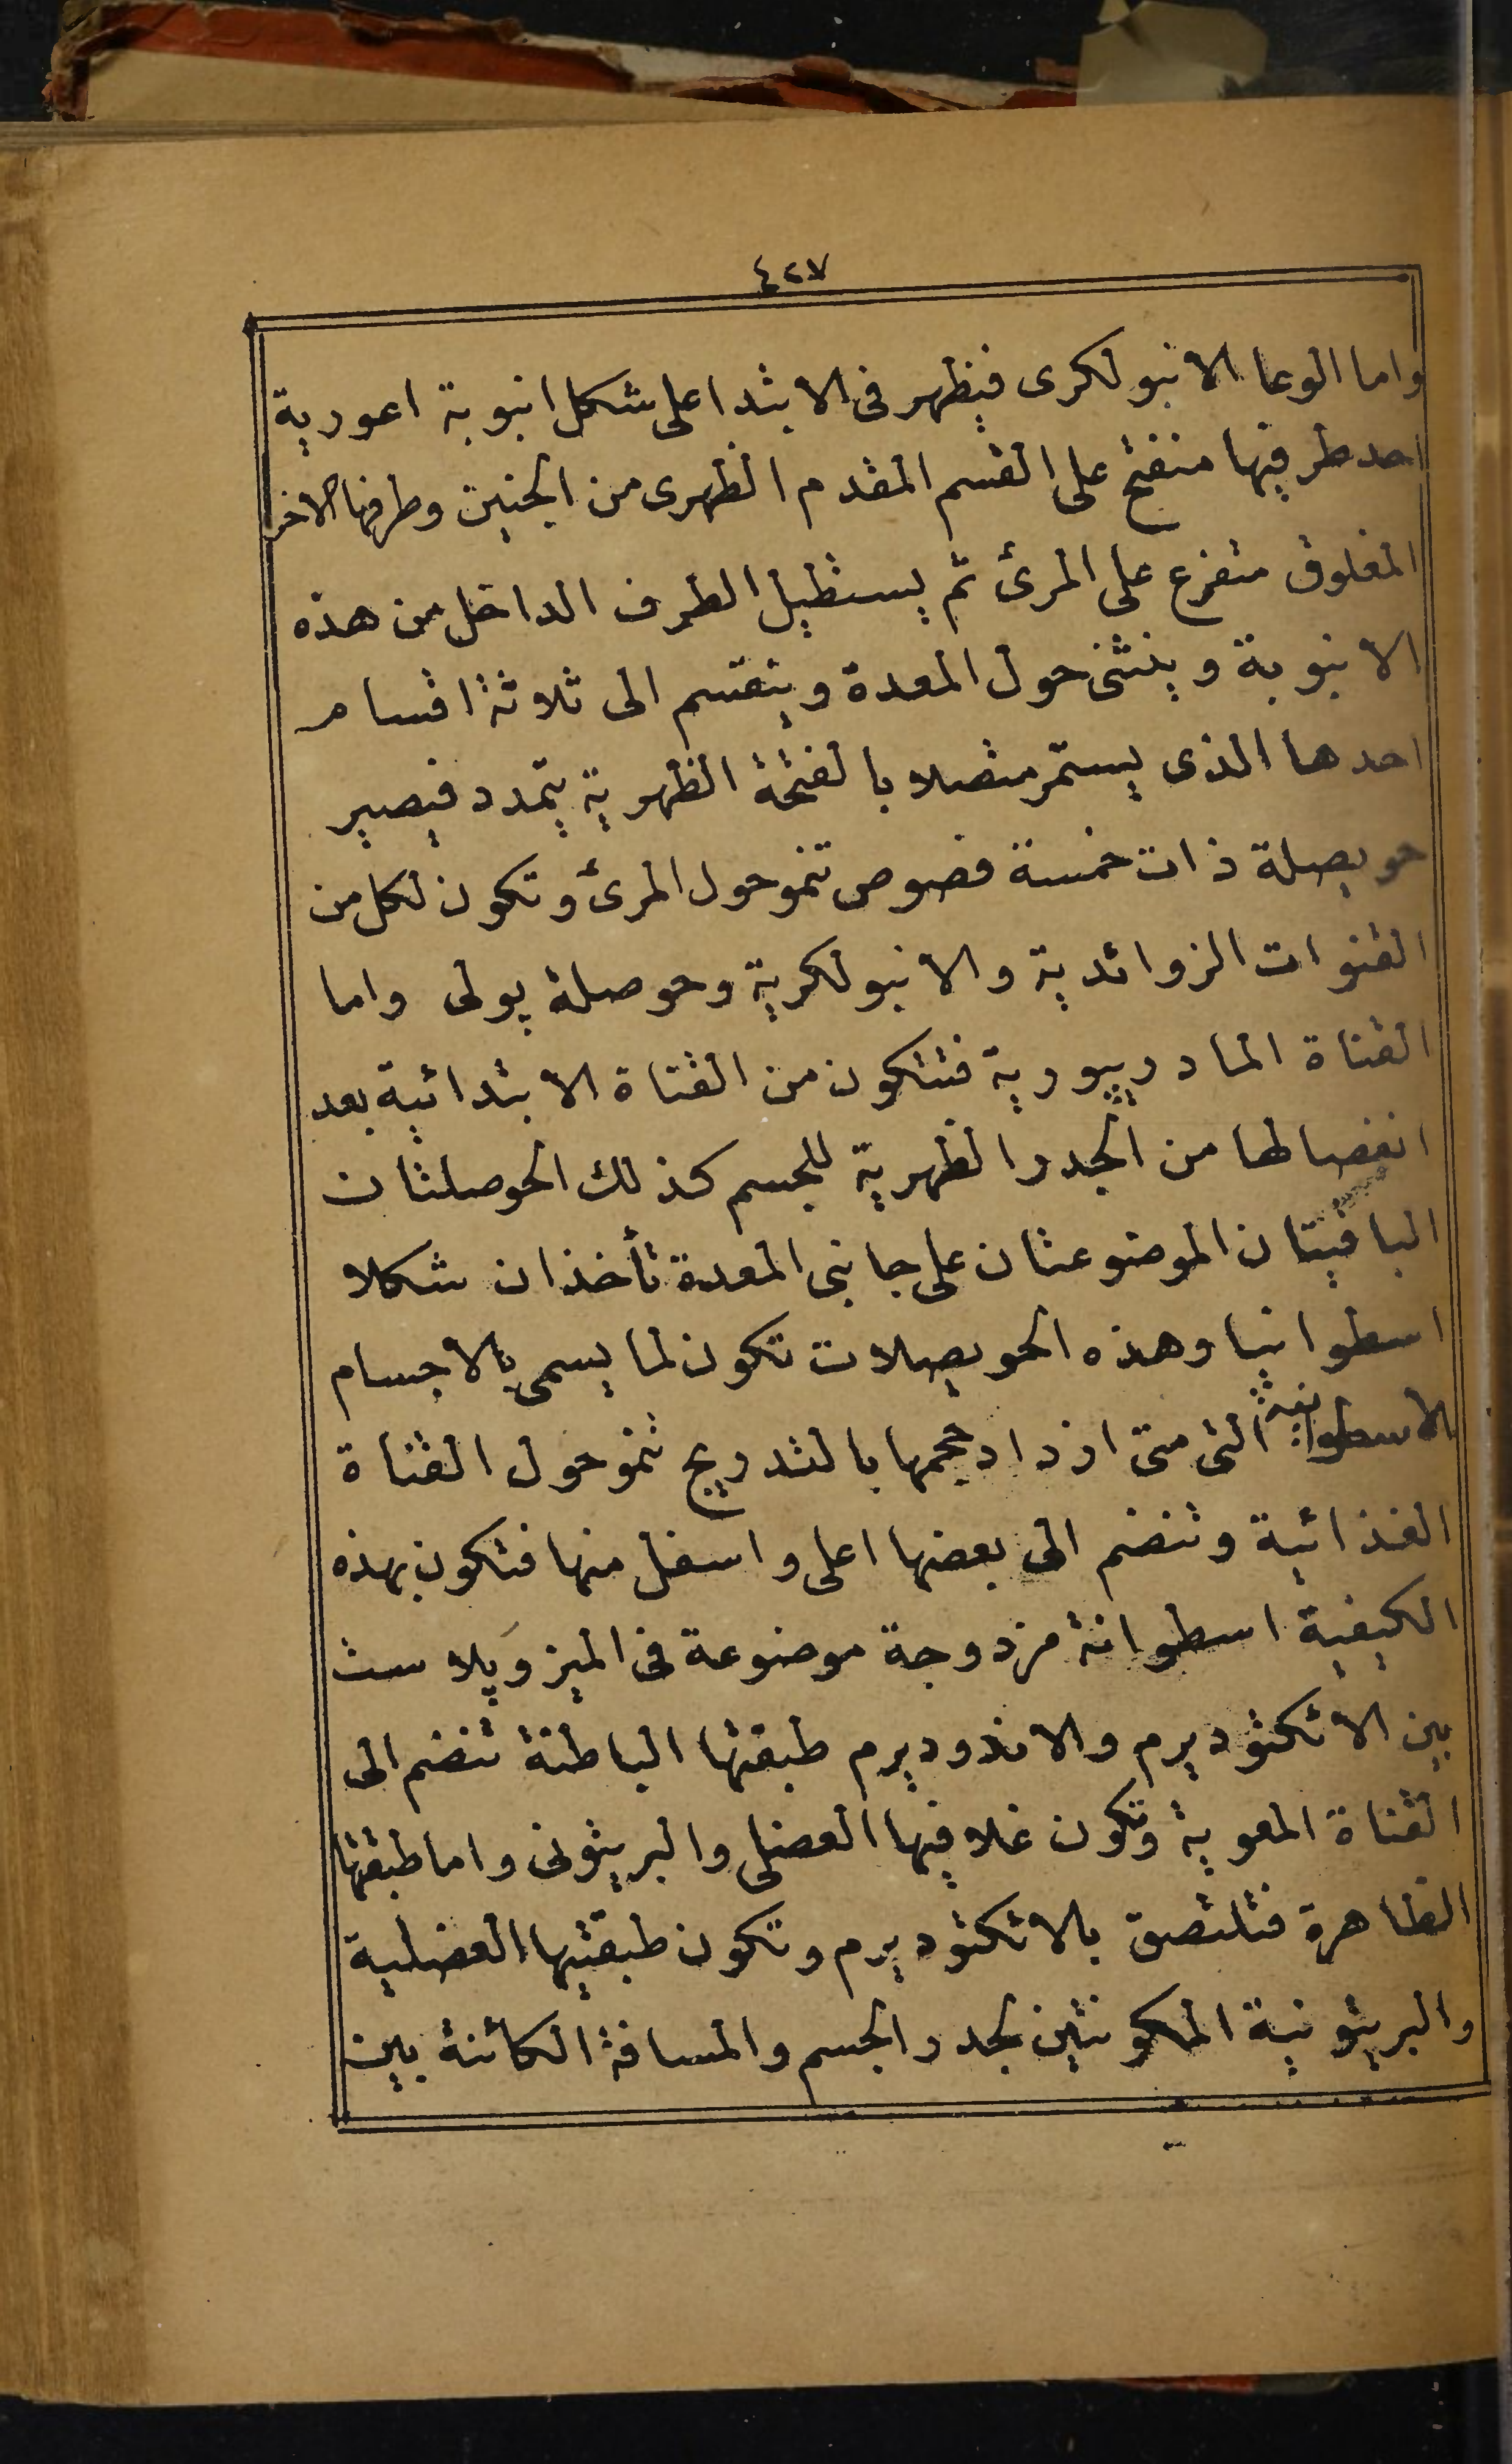 ٤٢٧
واما الوعا الانبولكرى فيظهر فى الابتدا على شكل انبوبة اعورية
احد طرفيها منفتح على القسم المقدم الظهرى من الجنين وطرفها الاخر
المغلوق متفرع على المرئ ثم يستطيل الطرف الداخل من هذه
الانبوبة وينثنى حول المعدة وينقسم الى ثلاثة اقسام
احدها الذى يستمر متصلا بالفتحة الظهرية يتمدد فيصير
حويصلة ذات خمسة فصوص تنمو حول المرئ وتكون لكل من
القنوات الزوائدية والانبولكرية وحوصلة پولى واما
القناة المادريپورية فتتكون من القناة الابتدائية بعد
انفصالها من الجدر الظهرية للجسم كذلك الحوصلتان
الباقيتان الموضوعتان على جانبى المعدة تأخذان شكلا
اسطوانيا وهذه الحويصلات تكون لما يسمى بالاجسام
الاسطوانية التى متى ازداد حجمها بالتدريج تنمو حول القناة
الغذائية وتنضم الى بعضها اعلى واسفل منها فتكون بهذه
الكيفية اسطوانة مزدوجة موضوعة فى الميزوپلاست
بين الاكتوديرم والاندوديرم طبقتها الباطنة تنضم الى
القناة المعوية وتكون غلافيها العضلى والبريتونى واما طبقتها
الظاهرة فتلتصق بالاكتوديرم وتكون طبقتيها العضلية
والبريتونية المكونتين لجدر الجسم والمسافة الكائنة بين